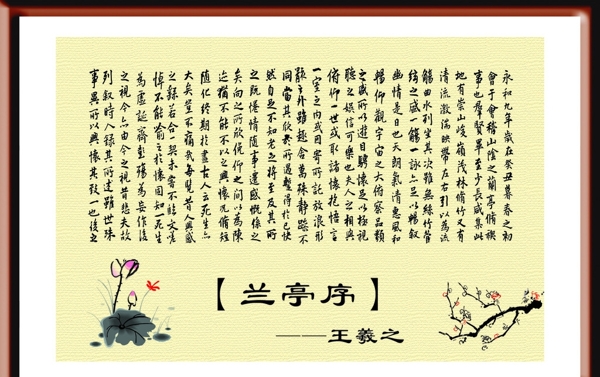 永和九年歲在癸丑暮春之初
會于會稽山陰之蘭亭脩禊
事也群賢畢至少長咸集此
地有崇山峻嶺茂林脩竹又有
清流激湍映帶左右引以為流
觴曲水列坐其次雖無絲竹管
絃之盛一觴一詠亦足以暢敘
幽情是日也天朗氣清惠風和
暢仰觀宇宙之大俯察品類
之盛所以遊目騁懷足以極視
聽之娛信可樂也夫人之相與
俯仰一世或取諸懷抱悟言
一室之內或因寄所託放浪形
骸之外雖趣舍萬殊靜躁不
同當其欣於所遇蹔得於己快
然自足不知老之將至及其所
之既惓情隨事遷感慨係之
矣向之所欣俛仰之間以為陳
迹猶不能不以之興懷況脩短
隨化終期於盡古人云死生亦
大矣豈不痛哉每覽昔人興感
之由若合一契未嘗不臨文嗟
悼不能喻之於懷固知一死生
為虛誕齊彭殤為妄作後
之視今亦由今之視昔悲夫故
列敘時人錄其所述雖世殊
事異所以興懷其致一也後之
【兰亭序】
——王羲之